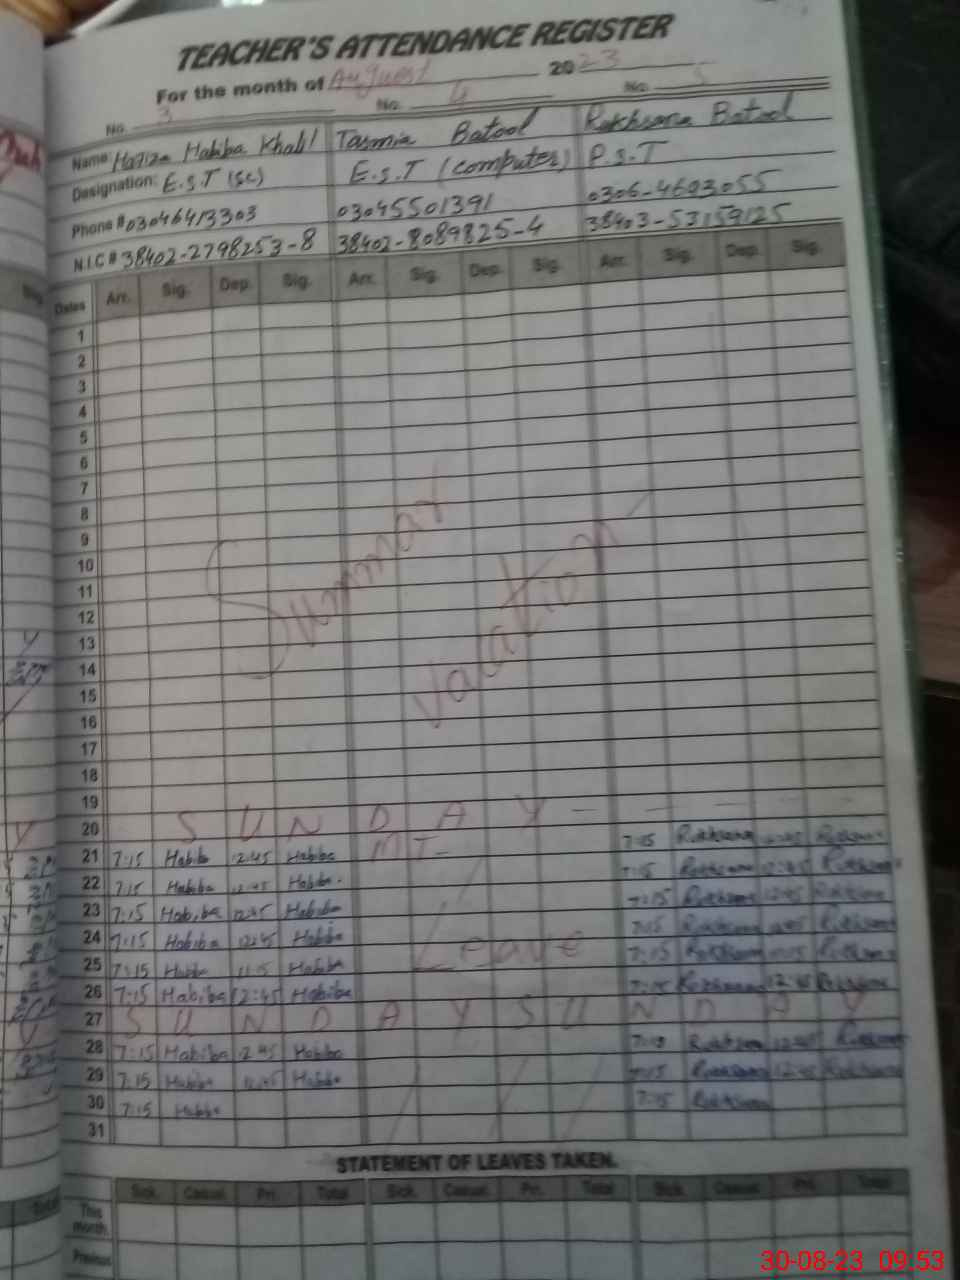 TEACHER'S ATTENDANCE REGISTER
For the month of August 2023
No. 3 No. 4 No. 5
Name Hafiza Habiba Khalil Tasmia Batool Rukhsana Batool
Designation: E.S.T (Sc) E.S.T (Computer) P.S.T
Phone # 03046413303 03045501391 0306-4603055
N.I.C # 38402-2798253-8 38402-8089825-4 38403-53159125
Dates Arr. Sig. Dep. Sig. Arr. Sig. Dep. Sig. Arr. Sig. Dep. Sig.
1
2
3
4
5
6
7
8
9
10
11
12
13
14
15
16
17
18
19
Summar
Vacation
20 SUNDAY
21 7:15 Habiba 12:45 Habiba 7:15 Rukhsana
22 7:15 Habiba 12:45 Habiba 7:15 Rukhsana 12:45 Rukhsana
23 7:15 Habiba 12:45 Habiba 7:15 Rukhsana 12:45 Rukhsana
24 7:15 Habiba 12:45 Habiba 7:15 Rukhsana Rukhsana
Leave
25 7:15 Habiba Habiba 7:15 Rukhsana Rukhsana
26 7:15 Habiba 12:45 Habiba 7:15 Rukhsana 12:45 Rukhsana
27 SUNDAY SUNDAY
28 7:15 Habiba 12:45 Habiba 7:15 Rukhsana 12:45 Rukhsana
29 7:15 Habiba 12:45 Habiba 7:15 Rukhsana 12:45 Rukhsana
30 7:15 Habiba 7:15 Rukhsana
31
STATEMENT OF LEAVES TAKEN.
Sick. Casual. Pri. Total Sick. Casual. Pri. Total Sick. Casual. Pri. Total
This month.
Previous
30-08-23 09.53